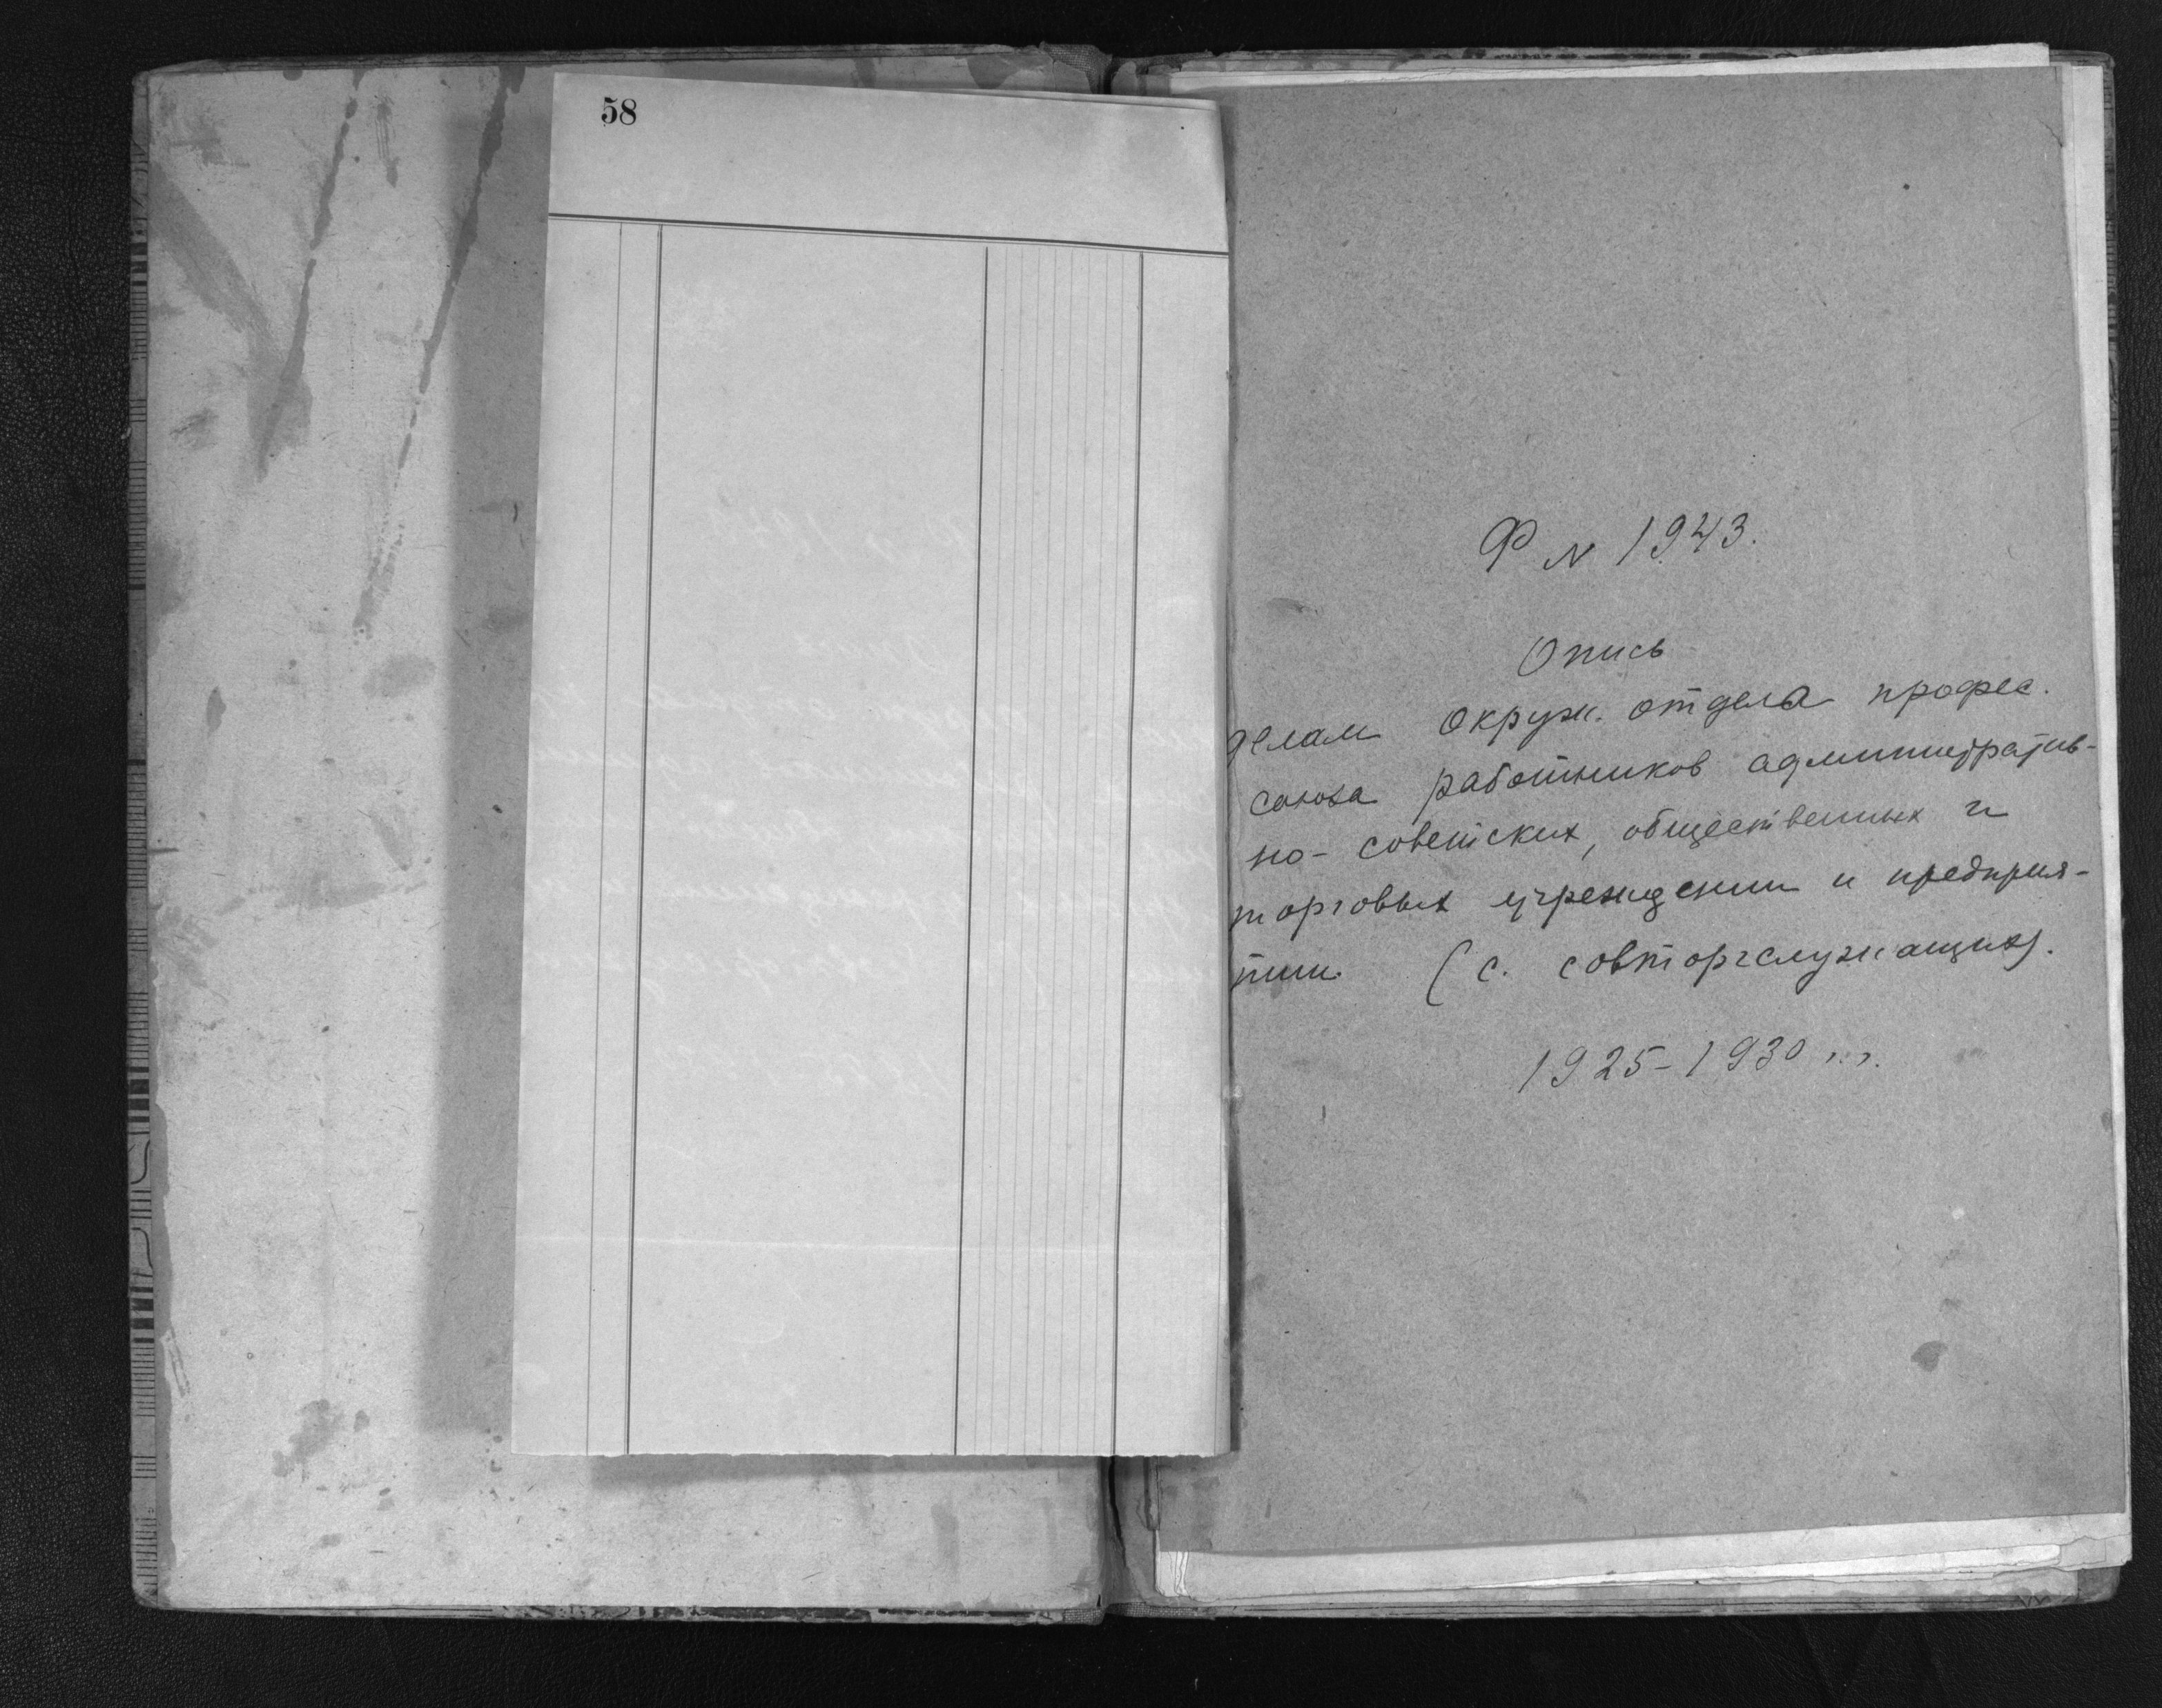 58
Ф N 1943.
Опись
делам Окруж. отдела профес.
союза работников административ-
но-советских, общественных и
торговых учреждений и предприя-
тий. (с. совторгслужащих).
1925-1930 г.г.